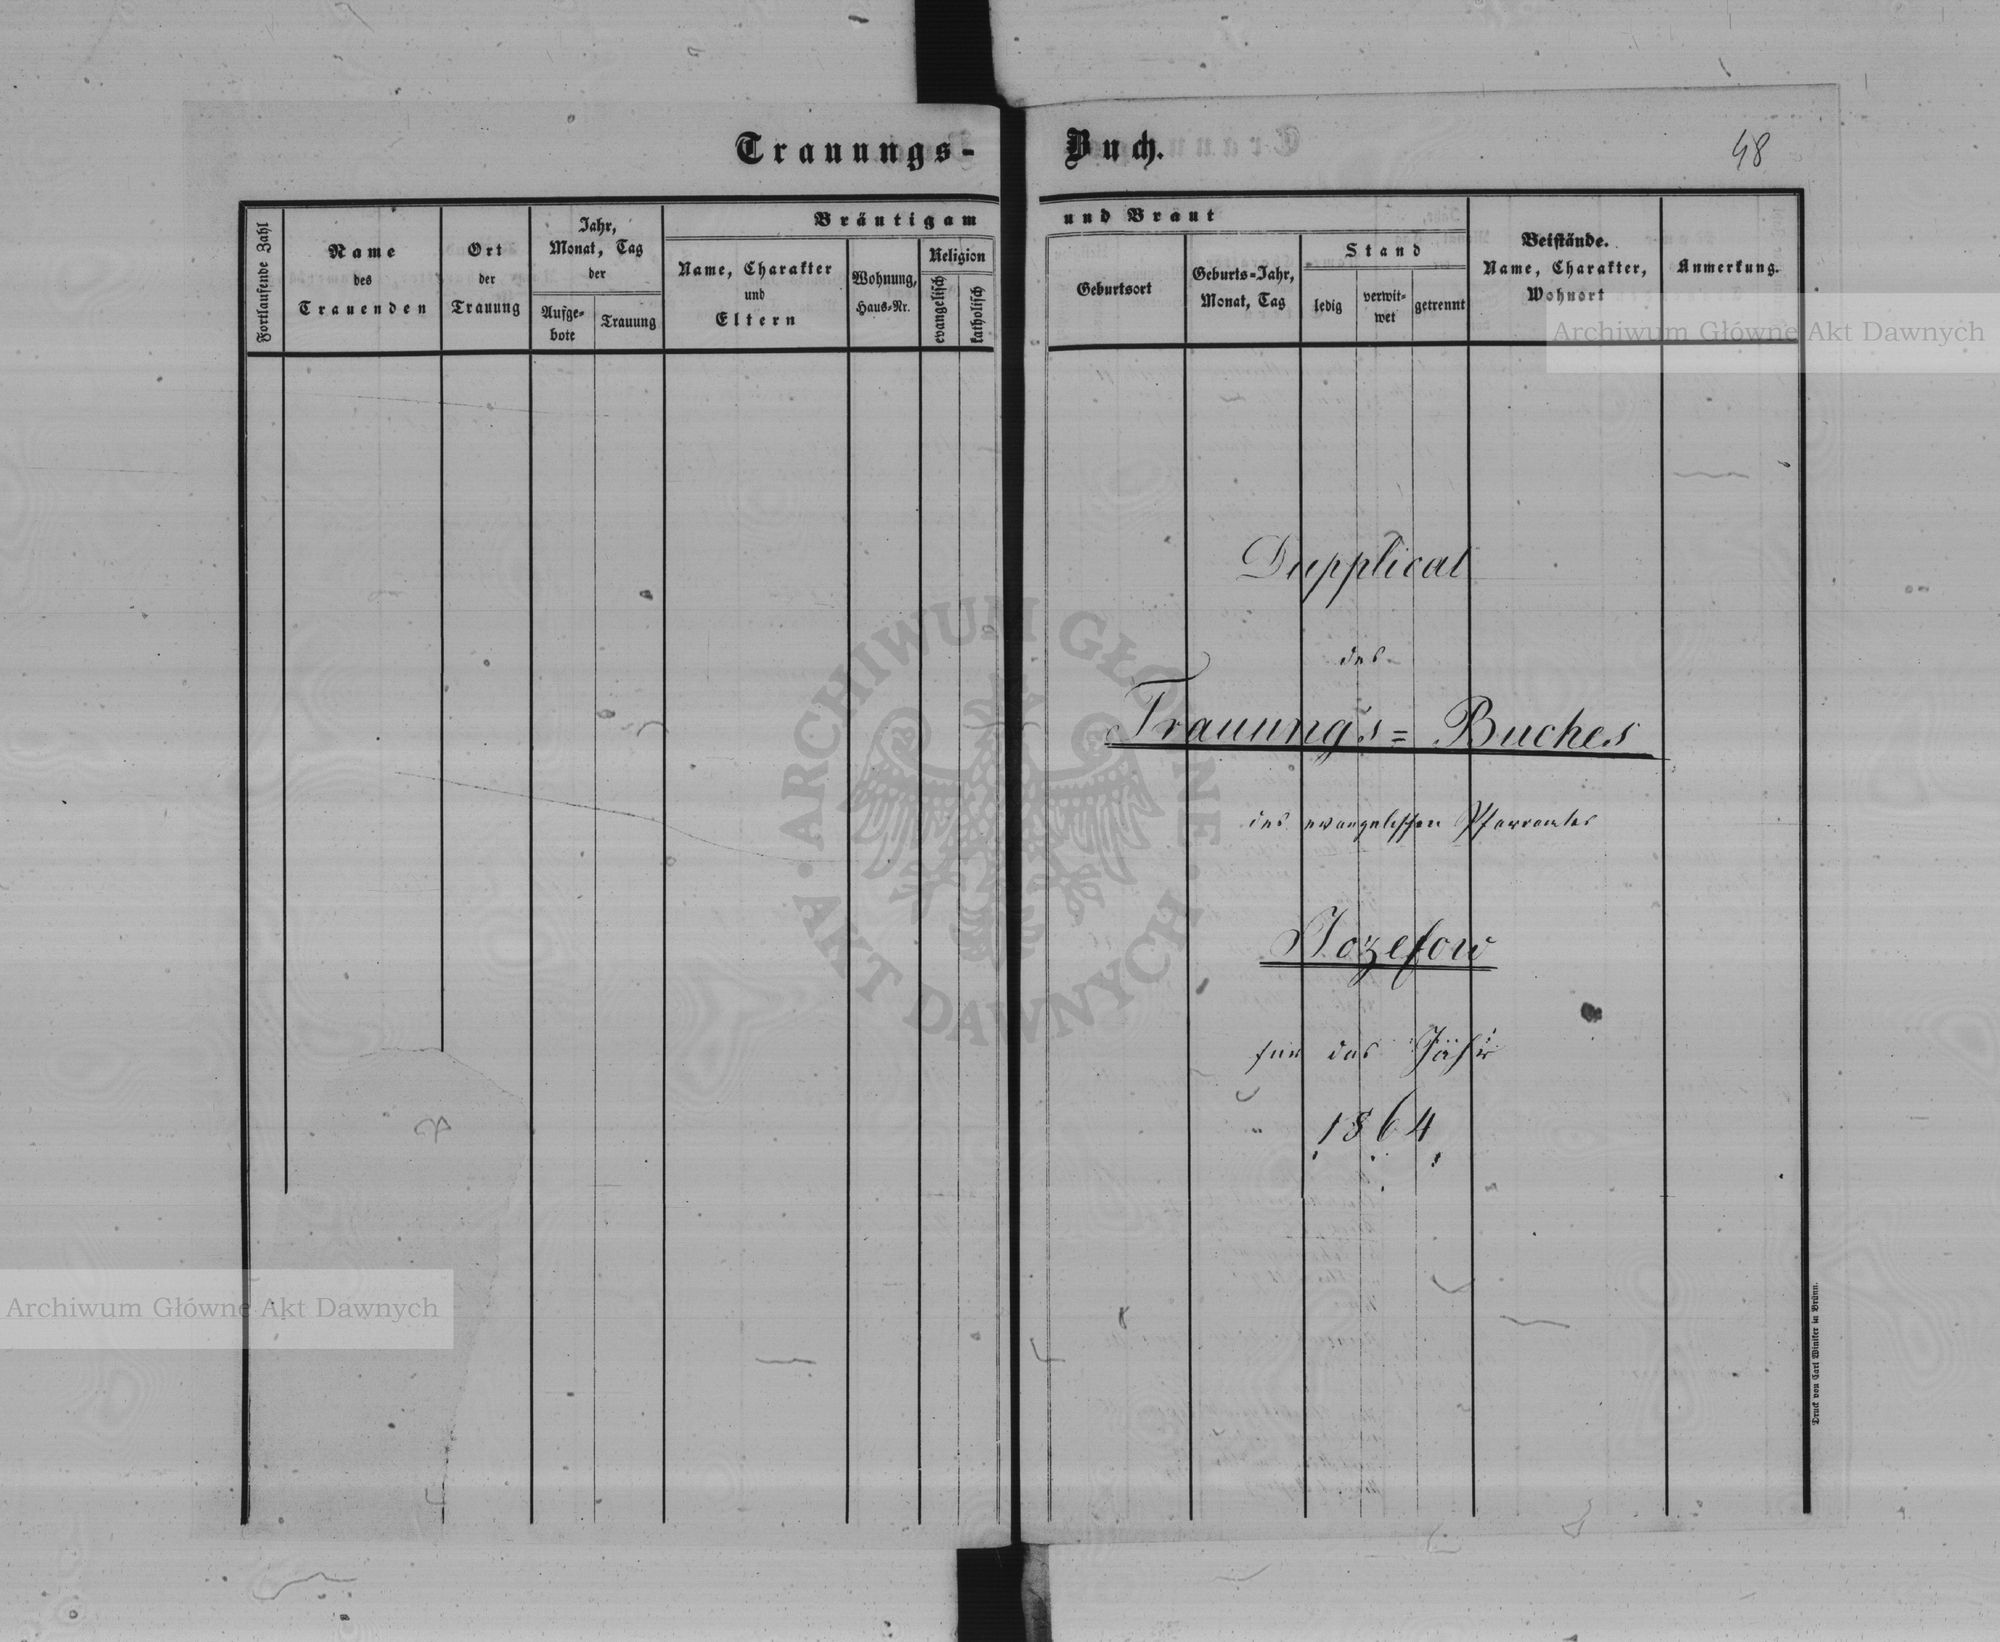 Trauungs-Buch.
48
Fortlaufende Zahl
Name
des
Trauenden
Ort
der
Trauung
Jahr,
Monat, Tag
der
Aufge-
bote
Trauung
Bräutigam und Braut
Name, Charakter
und
Eltern
Wohnung,
Haus-Nr.
Religion
evangelisch
katholisch
Geburtsort
Geburts-Jahr,
Monat, Tag
Stand
ledig
verwit-
wet
getrennt
Beistände.
Name, Charakter,
Wohnort
Anmerkung.
Archiwum Główne Akt Dawnych
Dupplicat
des
Trauungs= Buches
des evangelischen Pfarramtes
Jozefow
für das Jahr
1864
ARCHIWUM GŁÓWNE
AKT DAWNYCH
Archiwum Główne Akt Dawnych
Druck von Carl Winiker in Brünn.